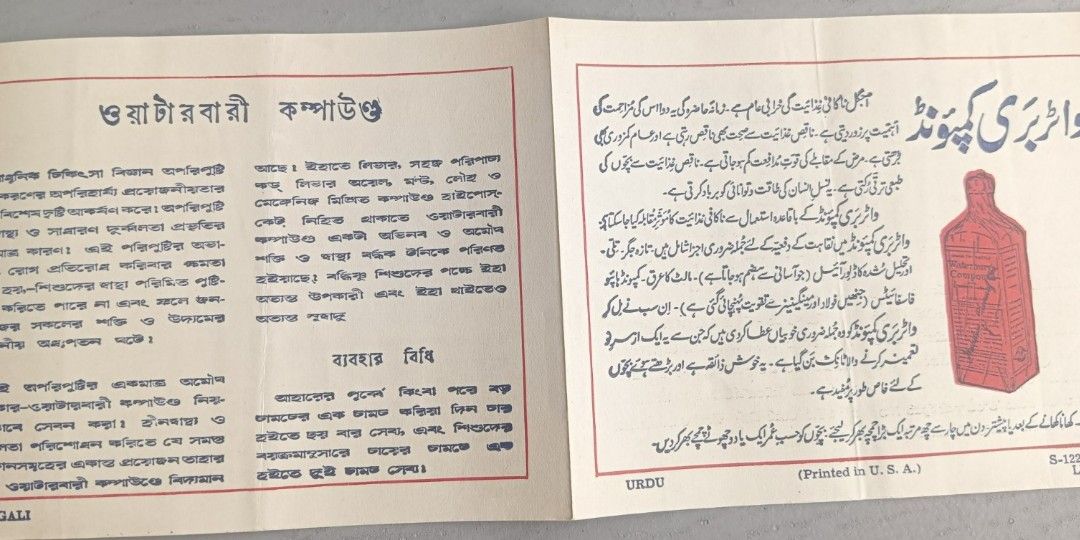 ওয়াটারবারী কম্পাউণ্ড
আধুনিক চিকিৎসা বিজ্ঞান অপরিপুষ্টি
করণের অপরিহার্য্য প্রয়োজনীয়তার
বিশেষ দৃষ্টি আকর্ষণ করে। অপরিপুষ্টি
ও সাধারণ দুর্ব্বলতা প্রভৃতির
কারণ। এই পরিপুষ্টির অভা-
রোগ প্রতিরোধ করিবার ক্ষমতা
হয়,-শিশুদের স্বাস্থ্য পরিমিত পুষ্টি-
করিতে পারে না এবং ফলে জন-
সকলের শক্তি ও উদ্যমের
অধঃপতন ঘটে।
অপরিপুষ্টির একমাত্র অমোঘ
ওয়াটারবারী কম্পাউণ্ড নিয়-
সেবন করা। হীনস্বাস্থ্য ও
পরিশোধন করিতে যে সমস্ত
একান্ত প্রয়োজন তাহার
ওয়াটারবারী কম্পাউণ্ডে বিদ্যমান
আছে। ইহাতে লিভার, সহজ পরিপাচ্য
কড্ লিভার অয়েল, মল্ট, লৌহ ও
মেঙ্গেনিজ মিশ্রিত কম্পাউণ্ড হাইপোস্-
ফেট্ নিহিত থাকাতে ওয়াটারবারী
কম্পাউণ্ড একটী অভিনব ও অমোঘ
শক্তি ও স্বাস্থ্য বর্দ্ধক টনিকে পরিণত
হইয়াছে। বর্দ্ধিষ্ণু শিশুদের পক্ষে ইহা
অত্যন্ত উপকারী এবং ইহা খাইতেও
অত্যন্ত সুস্বাদু
ব্যবহার বিধি
আহারের পূর্ব্বে কিংবা পরে বড়
চামচের এক চামচ করিয়া দিন চার
হইতে ছয় বার সেব্য, এবং শিশুদের
বয়ক্রমানুসারে চায়ের চামচে এক
হইতে দুই চামচ সেব্য।
GALI
واٹربَری کمپؤنڈ
آجکل ناکافی غذائیت کی خرابی عام ہے۔ زمانہ حاضرہ کی یہ دوا اس کی مزاحمت کی
اہمیت پر زور دیتی ہے۔ ناقص غذائیت سے صحت بھی ناقص رہتی ہے اور عام کمزوری بھی
بڑھتی ہے۔ مرض کے مقابلے کی قوتِ مدافعت کم ہو جاتی ہے۔ ناقص غذائیت سے بچوں کی
طبعی ترقی رُکتی ہے۔ یہ نسلِ انسان کی طاقت و توانائی کو برباد کرتی ہے۔
واٹربَری کمپؤنڈ کے باقاعدہ استعمال سے ناکافی غذائیت کا مؤثر مقابلہ کیا جا سکتا ہے۔
واٹربَری کمپؤنڈ میں نقاہت کے دفعیہ کے لئے جُملہ ضروری اجزا شامل ہیں۔ تازہ جگر۔ تلّی۔
اور تحلیل شدہ کاڈلِور آئیل (جو آسانی سے ہضم ہو جاتا ہے)۔ مالٹ کا عرق۔ کمپؤنڈ ہائپو
فاسفائیٹس (جنھیں فولاد اور مینگینیز سے تقویت پہنچائی گئی ہے)۔ اِن سب نے مل کر
واٹربَری کمپؤنڈ کو وہ جُملہ ضروری خوبیاں عطا کر دی ہیں کہ جن سے یہ ایک از سرِ نو
تعمیر کرنے والا ٹانک بن گیا ہے۔ یہ خوش ذائقہ ہے اور بڑھتے ہوئے بچوں
کے لئے خاص طور پر مُفید ہے۔
Waterbury's
Compound
۔ کھانا کھانے کے بعد یا پیشتر دن میں چار سے چھ مرتبہ ایک بڑا چمچہ بھر کر لیجئے۔ بچوں کو حسبِ عمر ایک یا دو چھوٹے چمچے بھر کر دیں۔
URDU
(Printed in U. S. A.)
S-122